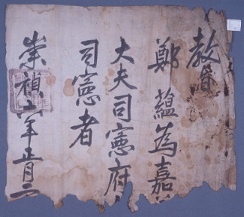 教旨
鄭蘊為嘉
大夫司憲府
司憲者
崇禎六年正月二